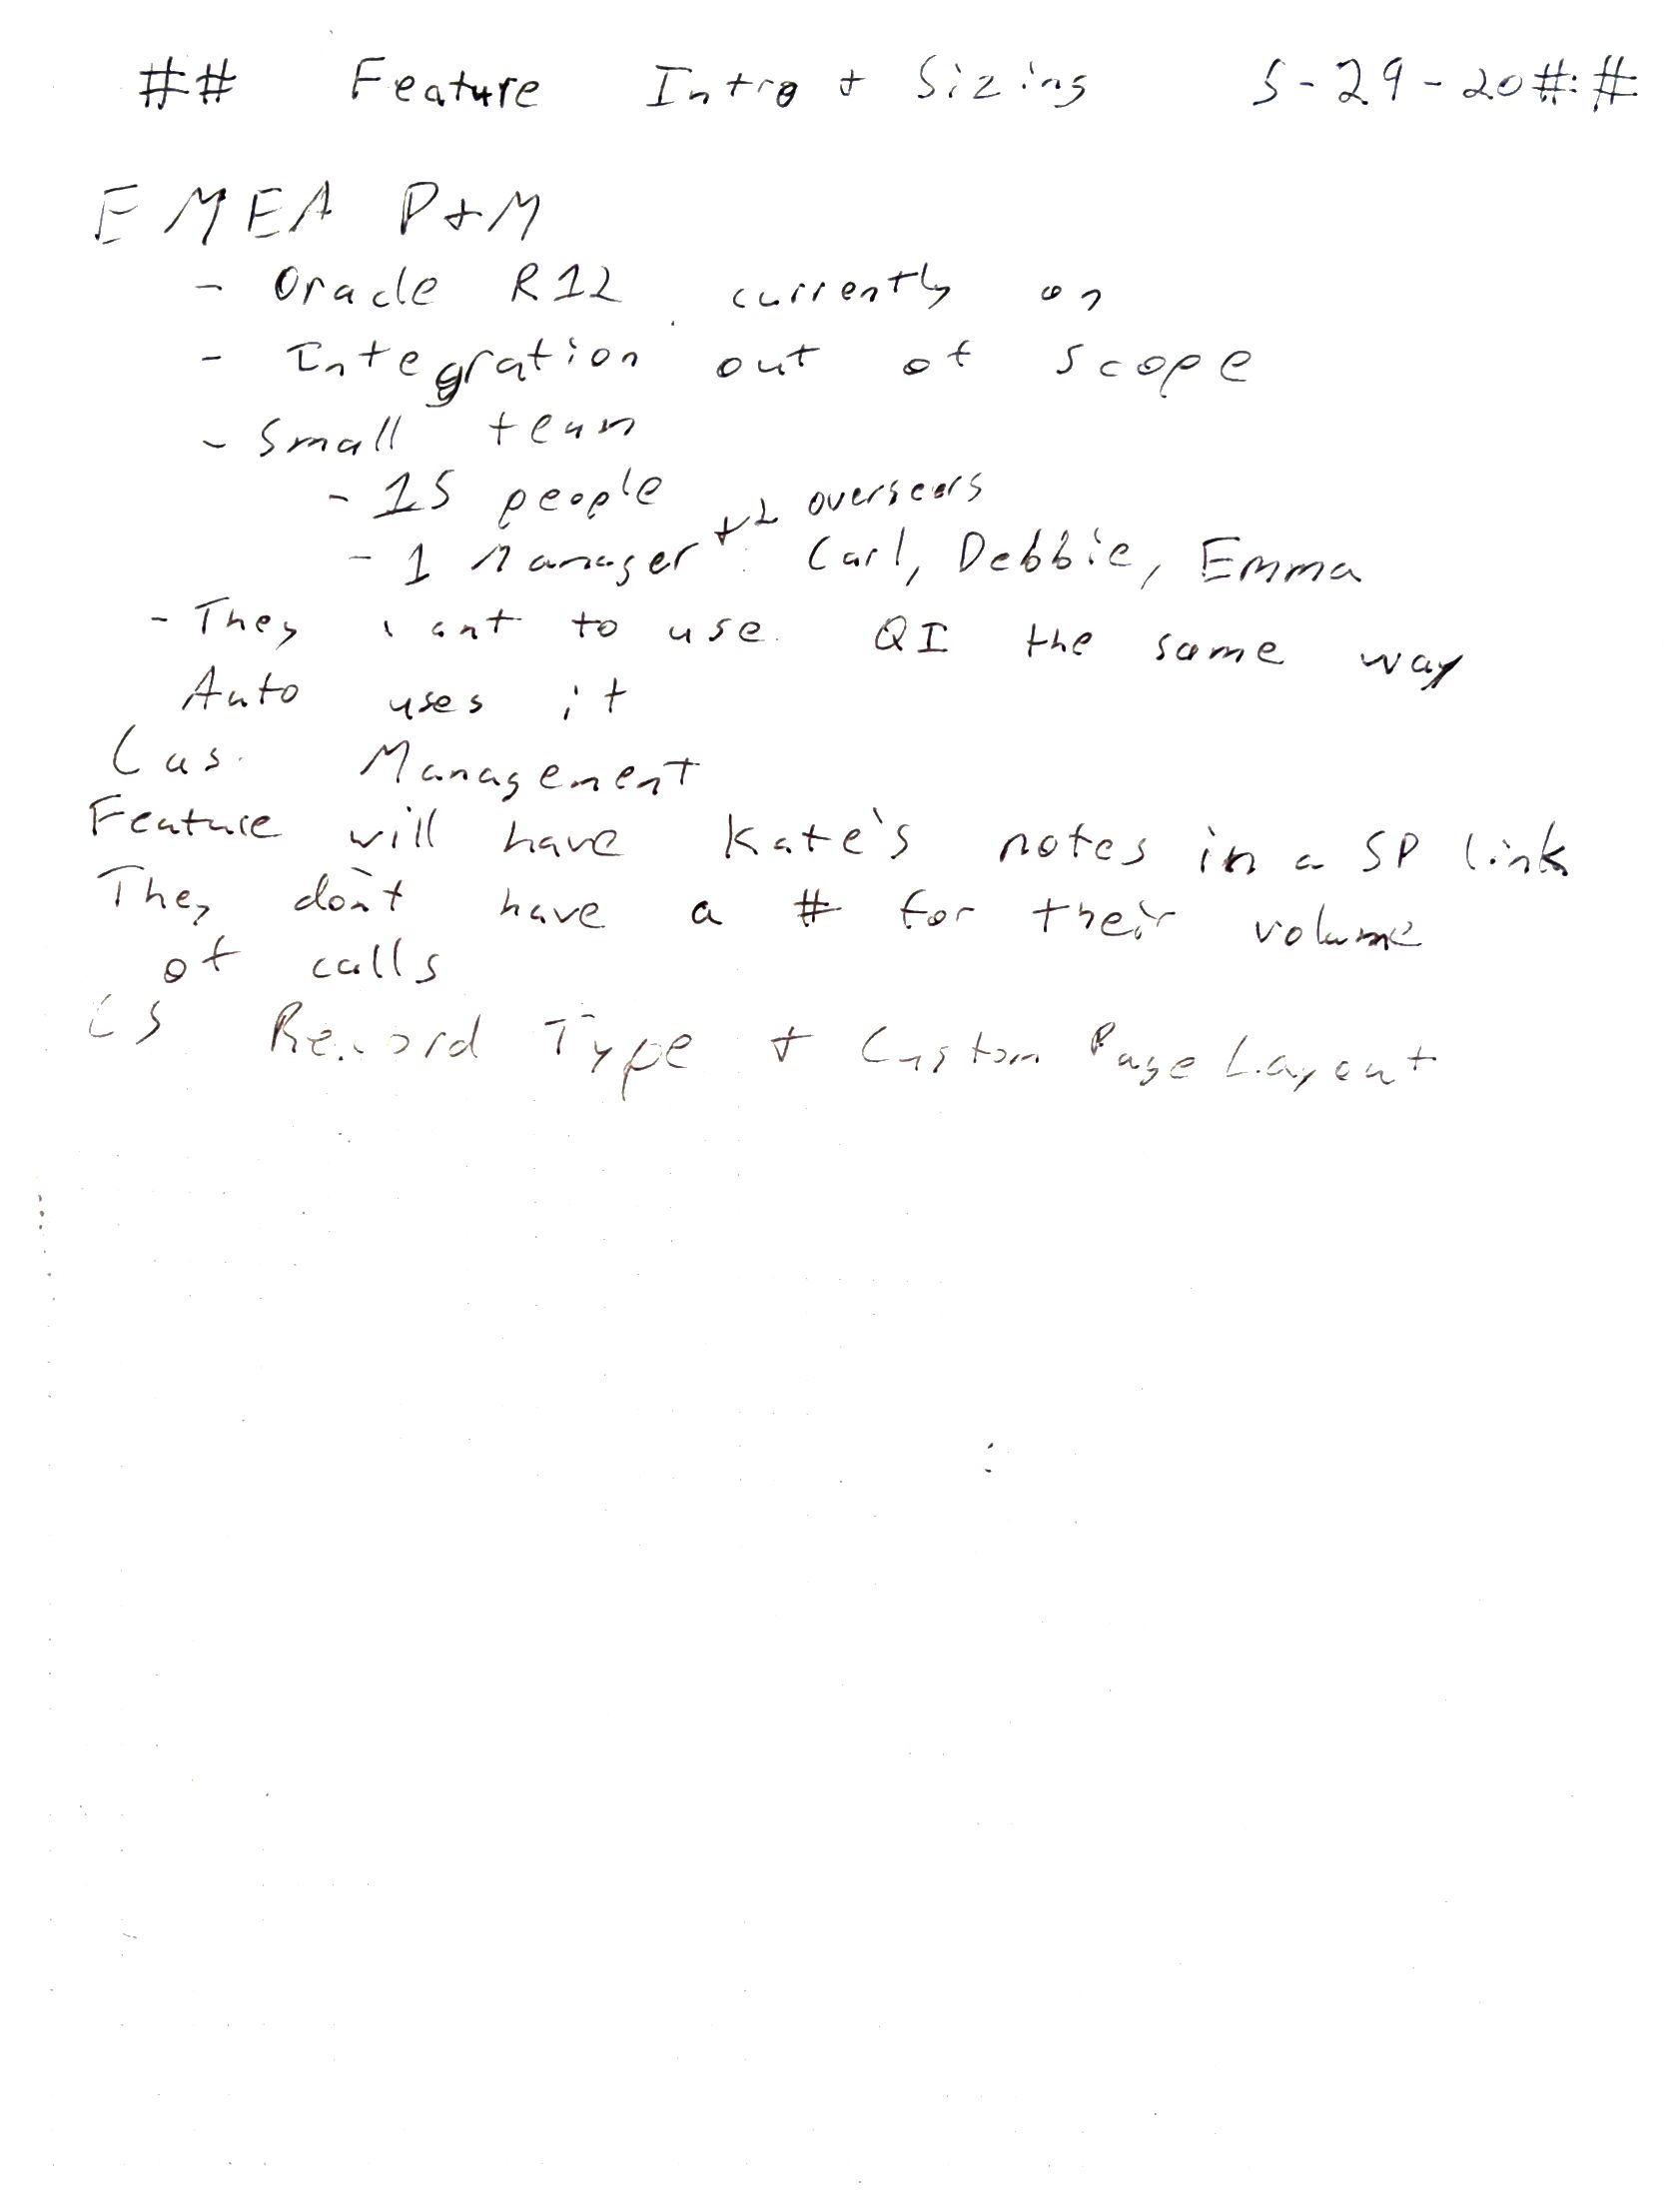 ## Feature Intro + Sizing 5-29-20##
EMEA P+M
- Oracle R12 currently on
- Integration out of scope
- Small team
- 15 people
- 1 Manager +2 overseers: Carl, Debbie, Emma
- They want to use QI the same way
Auto uses it
Cas. Management
Feature will have Kate's notes in a SP link
They don't have a # for their volume
of calls
CS Record Type + Custom Page Layout